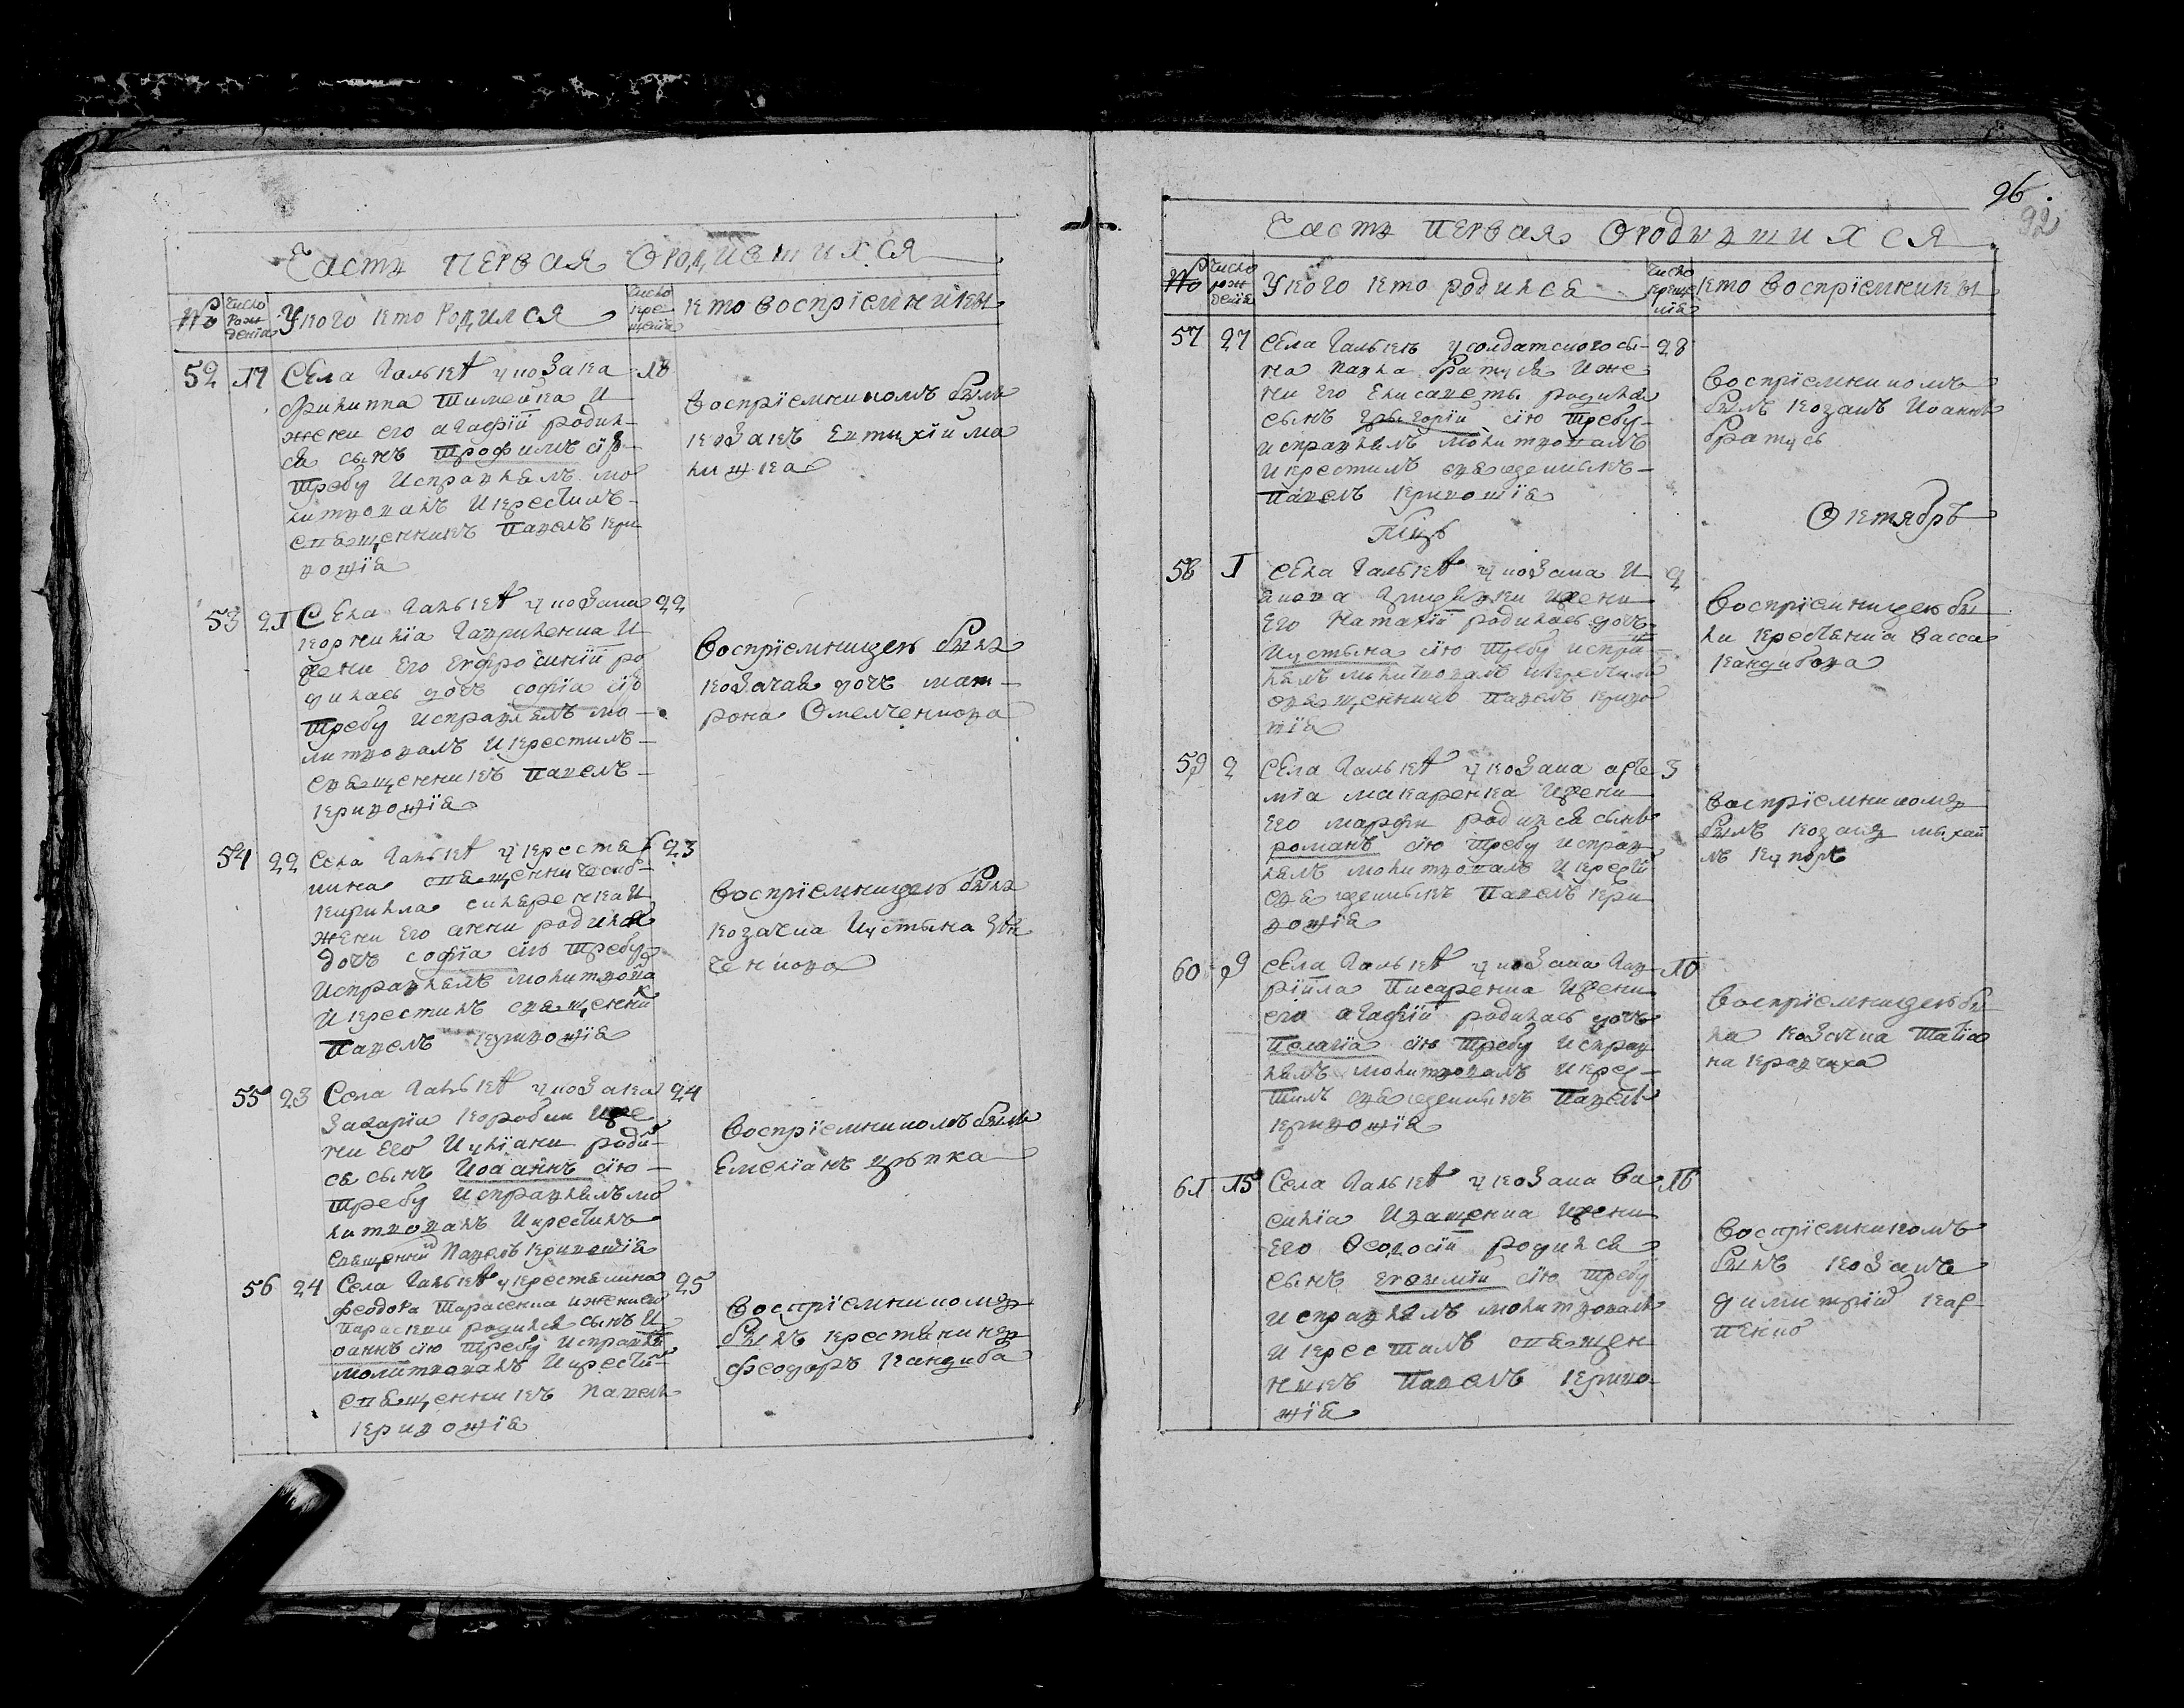 Часть первая О родившихся
№ число рождения У кого кто родился число крещенія кто воспріемники
52 17 Села Гальки у козака 18
Филиппа Тимошка и
жени его Агафіи родил-
ся сынъ Трофимъ сію
требу исправлялъ мо
литвовалъ и крестилъ
священникъ Павелъ Кри
вошія
воспріемникомъ былъ
козакъ Евтихій Ма
53 21 Села Гальки у козака 22
Корнилія Гавриленка и
жени его Евфросиніи ро
дилась дочь Софія сію
требу исправлялъ мо
литвовалъ и крестилъ
священникъ Павелъ
Кривошія
воспріемницею была
козачая дочь Мат
рона Омелченкова
54 22 Села Гальки у крестя 23
нина священническаго
Кирилла Сидеренка и
жени его Анни родилас
дочь Софія сію требу
исправлялъ молитвова
и крестилъ священник
Павелъ Кривошія
воспріемницею была
козачка Иустина
55 23 Села Гальки у козака 24
Захарія Коробки и же
ни его Иуліани родил
ся сынъ Иоаннъ сію
требу исправлялъ мо
литвовалъ и крестилъ
священни Павелъ Кривошія
воспріемникомъ былъ
Емеліанъ
56 24 Села Гальки у крестянина 25
Феодора Тарасенка и жени его
Параскеви родился сынъ И
оаннъ сію требу исправля
молитвовалъ и крести
священникъ Павелъ
Кривошія
воспріемникомъ
былъ крестянинъ
Феодоръ Кандиба
96.
92
Часть первая О родившихся
№ число рожденія У кого кто родился число крещенія кто воспріемники
57 27 Села Гальки у солдатского сы- 28
на Павла Братуся и же
ни его Елисавети родился
сынъ Григорій сію требу
исправлялъ молитвовалъ
и крестилъ священникъ
Павелъ Кривошія
воспріемникомъ
былъ козакъ Иоаннъ
Братусь
Октябръ
58 1 Села Гальки у козака И 2
жени
его Наталіи родилась дочь
Иустина сію требу испра
влялъ молитвовалъ и крестилъ
священникъ Павелъ Криво
шія
воспріемницею бы
ла крестянка Васса
Кандибова
59 2 Села Гальки у козака Арте 3
мія Макаренка и жени
его Марфи родился сынъ
Романъ сію требу исправ
лялъ молитвовалъ и крести
священникъ Павелъ Кри
вошія
воспріемникомъ
былъ козакъ Михаи
лъ
60 9 Села Гальки у козака Гав 10
ріила Писаренка и жени
его Агафіи родилась дочь
Пелагія сію требу исправ
лялъ молитвовалъ и крес
тилъ священникъ Павелъ
Кривошія
воспріемницею бы
ла козачка Татіа
на Кравчиха
61 15 Села Гальки у козака Ва 16
силія Иващенка и жени
его Феодосіи родился
сынъ Евфимій сію требу
исправлялъ молитвовалъ
и крестилъ священ
никъ Павелъ Криво
шія
воспріемникомъ
былъ козакъ
Димитрій Кар
пенко